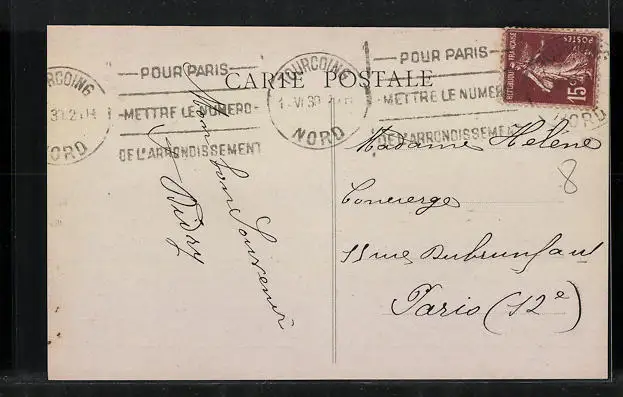 TOURCOING
NORD
POUR PARIS
METTRE LE NUMERO
DE L'ARRONDISSEMENT
CARTE POSTALE
TOURCOING
NORD
POUR PARIS
METTRE LE NUMERO
DE L'ARRONDISSEMENT
REPUBLIQUE FRANÇAISE
POSTES
15c
Mon bon Souvenir
Didry
Madame Hélène
8
Concierge
11 rue Dubrunfaut
Paris (12e)